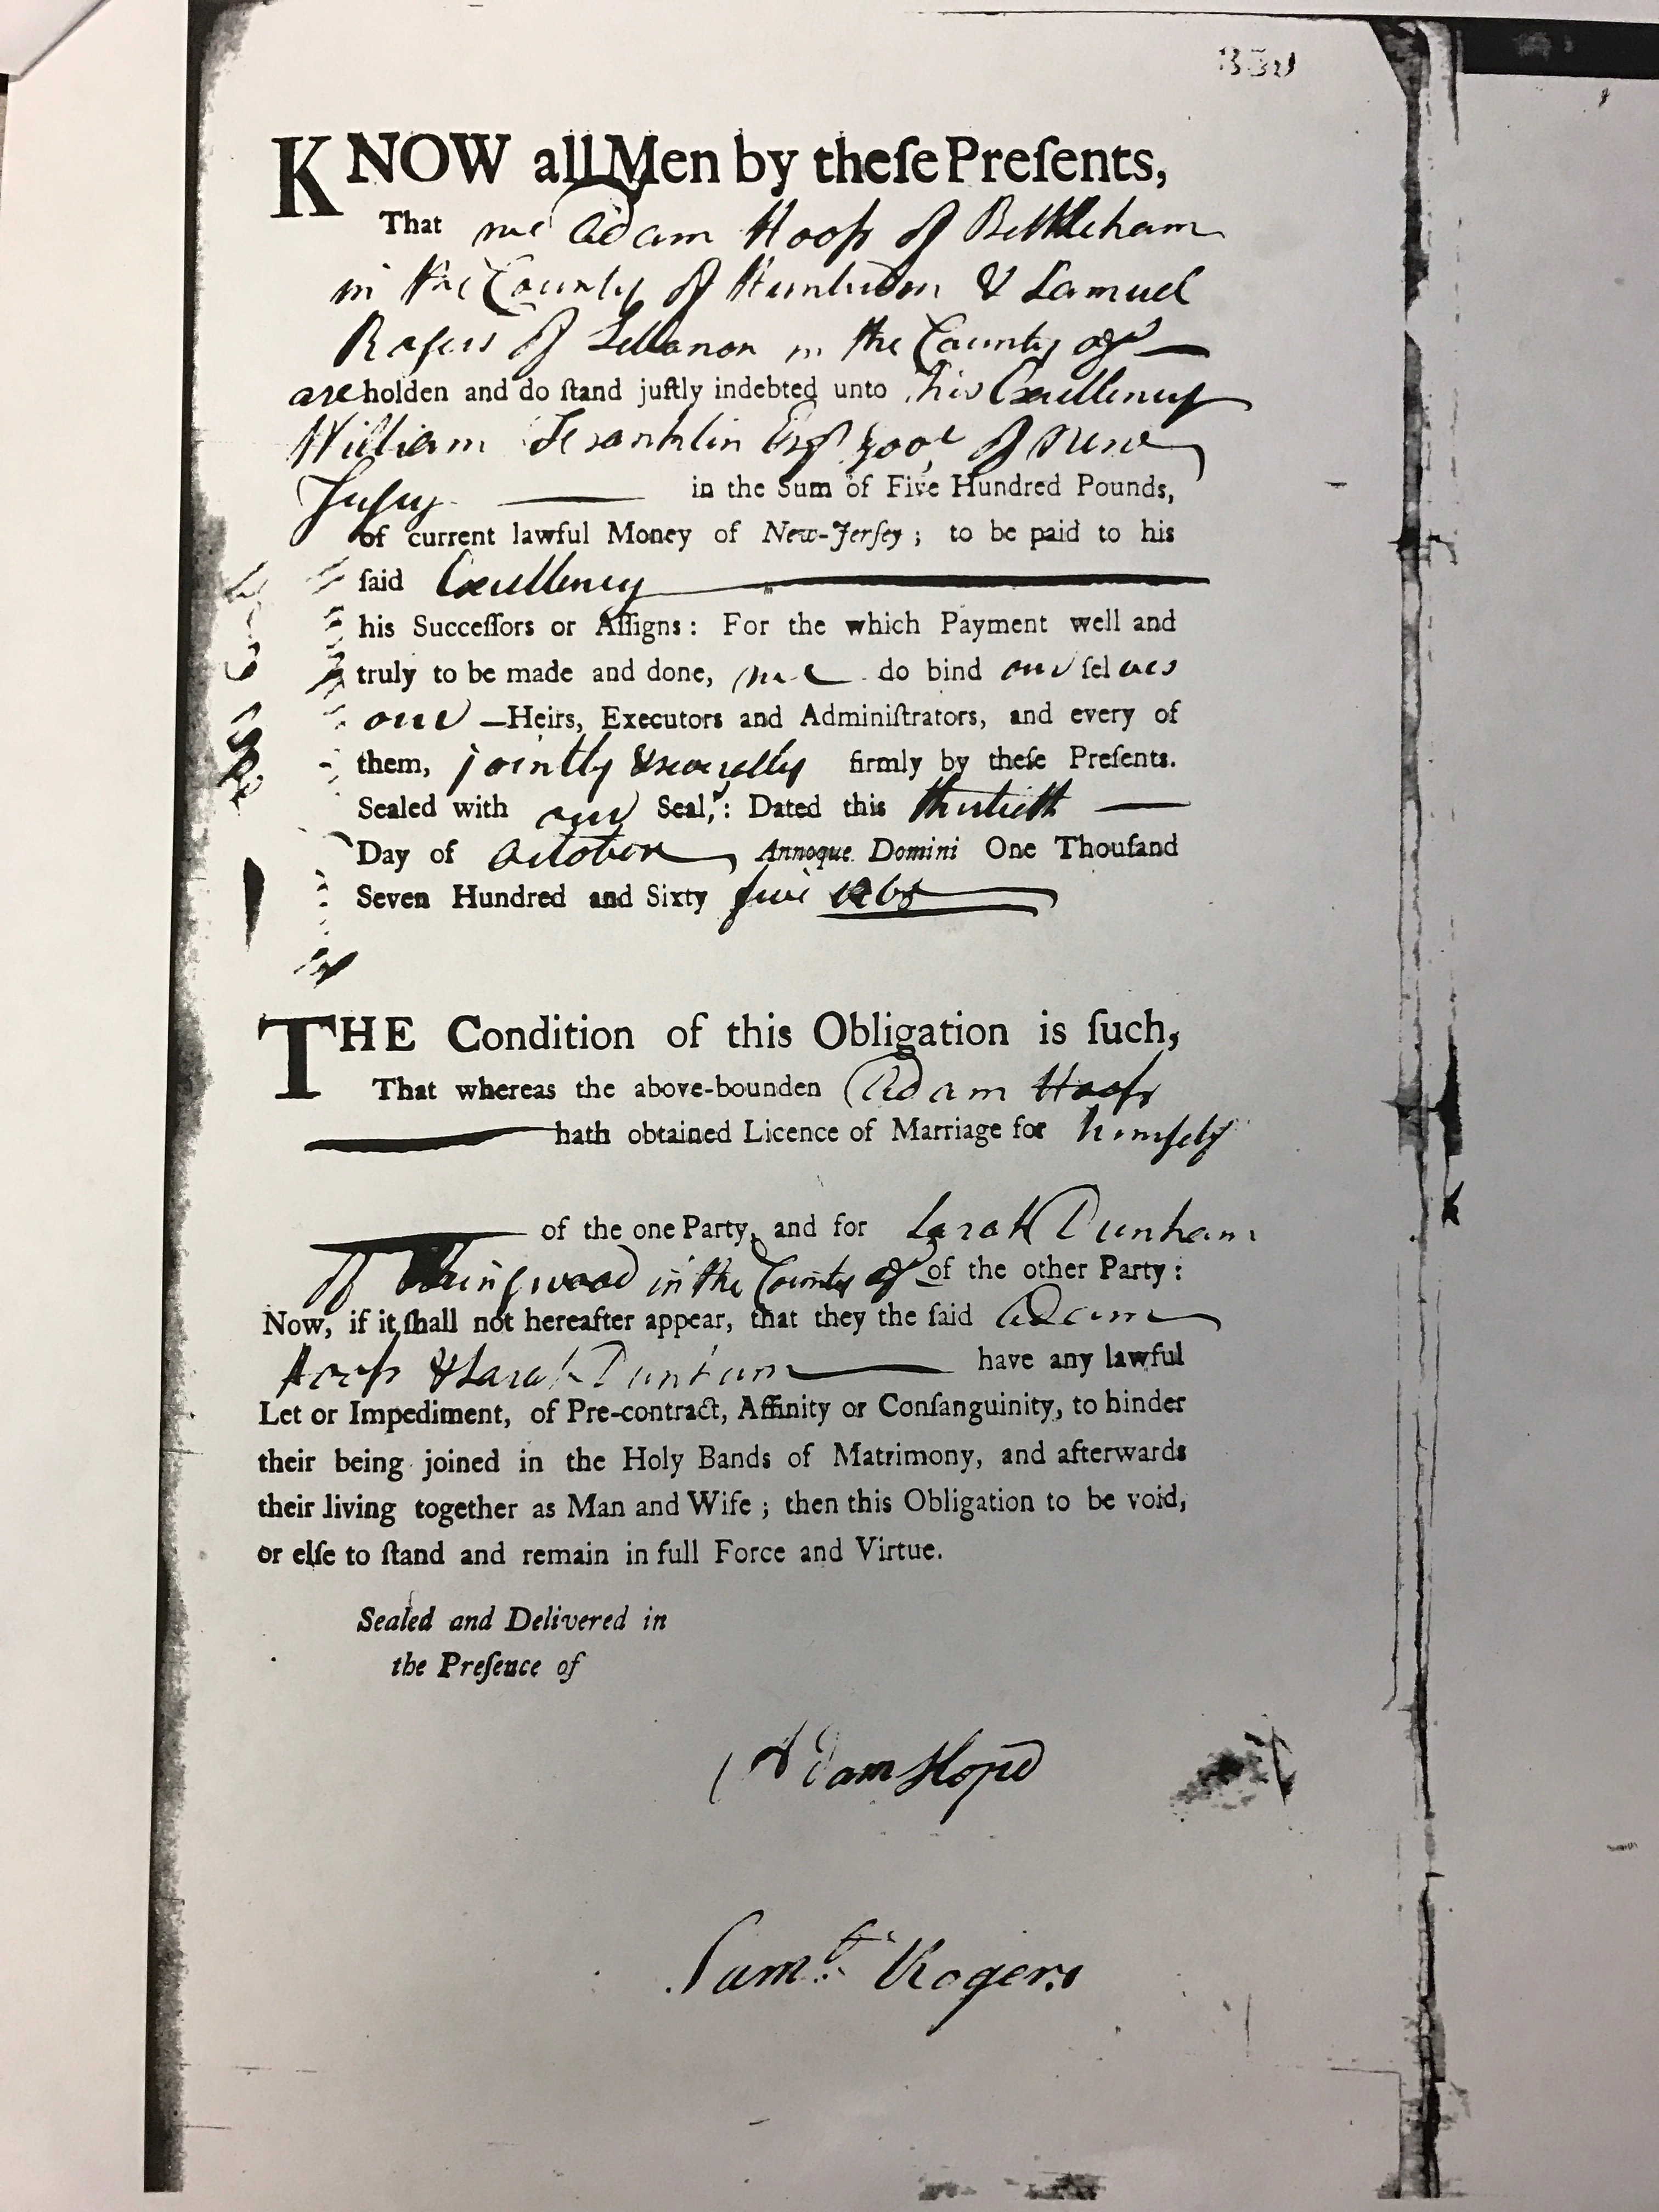 330
KNOW all Men by theſe Preſents,
That we Adam Hoops of Bethleham
in the County of Hunterdon & Samuel
Rogers of Lebanon in the County afsd
are holden and do ſtand juſtly indebted unto his Excellency
William Franklin Esqr Govr of New
Jersey in the Sum of Five Hundred Pounds,
of current lawful Money of New-Jerſey; to be paid to his
ſaid Excellency
his Succeſſors or Aſſigns: For the which Payment well and
truly to be made and done, we do bind our ſelves
our Heirs, Executors and Adminiſtrators, and every of
them, jointly & severally firmly by theſe Preſents.
Sealed with our Seals: Dated this thirtieth
Day of October Annoque Domini One Thouſand
Seven Hundred and Sixty five 1765
THE Condition of this Obligation is ſuch,
That whereas the above-bounden Adam Hoops
hath obtained Licence of Marriage for himself
of the one Party, and for Sarah Dunham
of in the County afsd of the other Party:
Now, if it ſhall not hereafter appear, that they the ſaid Adam
Hoops & Sarah Dunham have any lawful
Let or Impediment, of Pre-contract, Affinity or Conſanguinity, to hinder
their being joined in the Holy Bands of Matrimony, and afterwards
their living together as Man and Wife; then this Obligation to be void,
or elſe to ſtand and remain in full Force and Virtue.
Sealed and Delivered in
the Preſence of
Adam Hope
Saml. Rogers